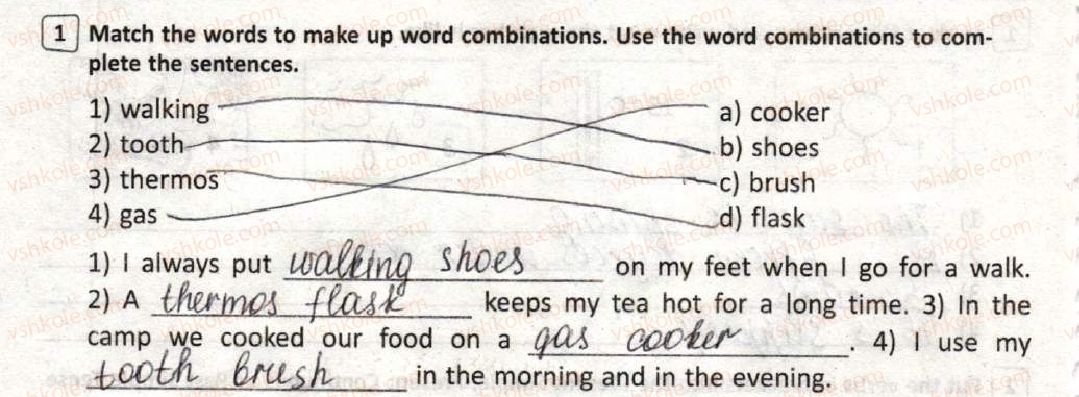 1 Match the words to make up word combinations. Use the word combinations to com-
plete the sentences.
1) walking a) cooker
2) tooth b) shoes
3) thermos c) brush
4) gas d) flask
1) I always put walking shoes on my feet when I go for a walk.
2) A thermos flask keeps my tea hot for a long time. 3) In the
camp we cooked our food on a gas cooker. 4) I use my
tooth brush in the morning and in the evening.